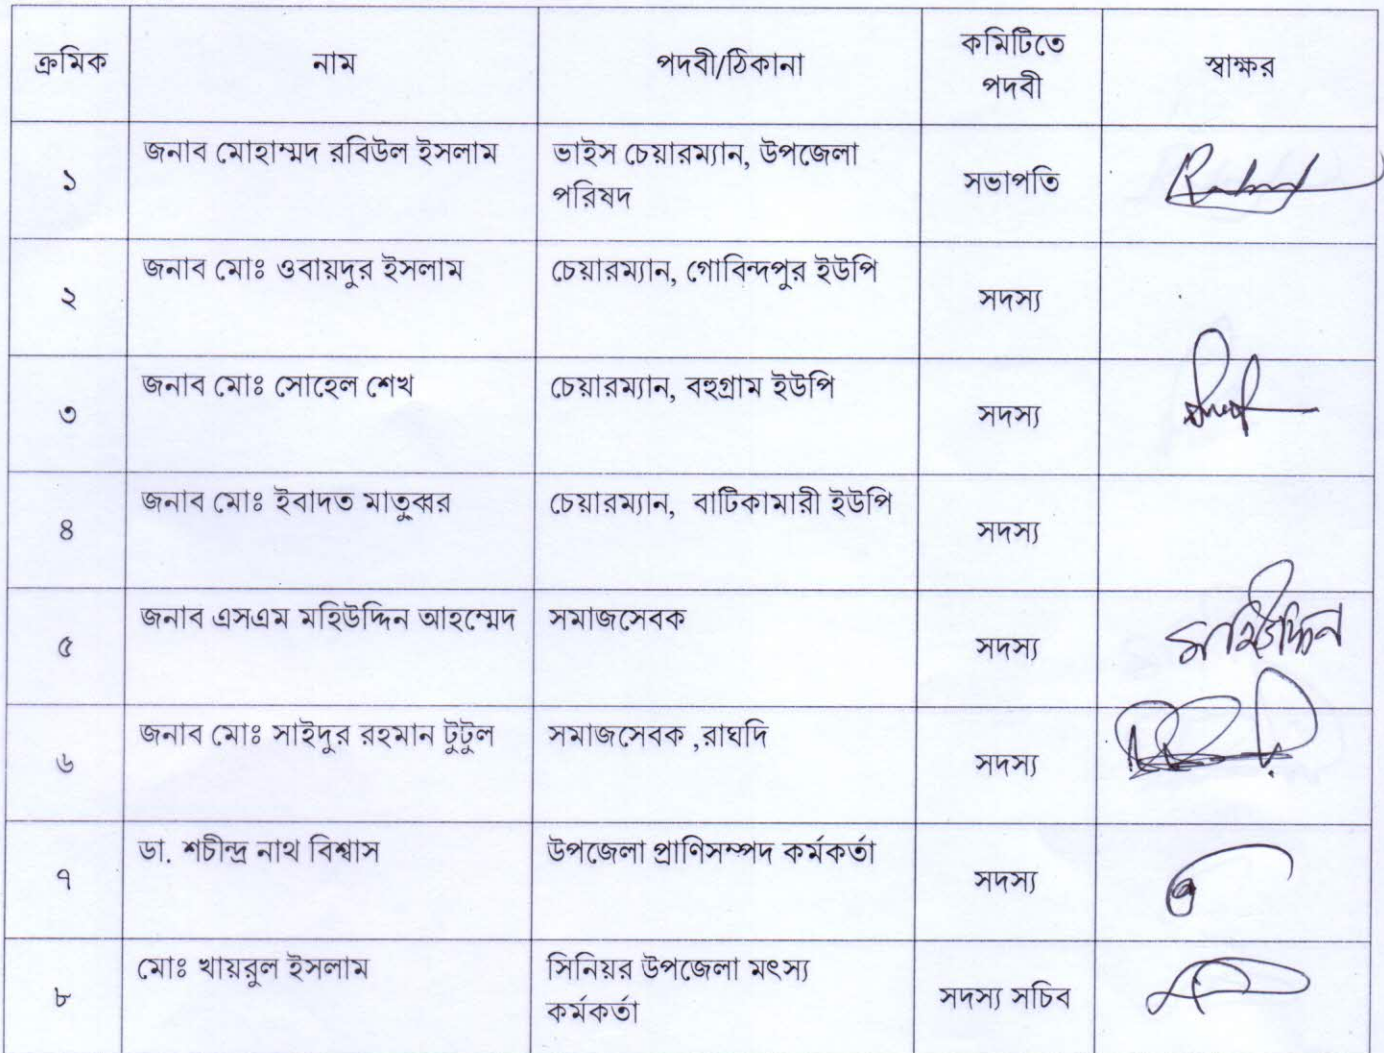 ক্রমিক নাম পদবী/ঠিকানা কমিটিতে পদবী স্বাক্ষর
১ জনাব মোহাম্মদ রবিউল ইসলাম ভাইস চেয়ারম্যান, উপজেলা পরিষদ সভাপতি
২ জনাব মোঃ ওবায়দুর ইসলাম চেয়ারম্যান, গোবিন্দপুর ইউপি সদস্য
৩ জনাব মোঃ সোহেল শেখ চেয়ারম্যান, বহুগ্রাম ইউপি সদস্য
৪ জনাব মোঃ ইবাদত মাতুব্বর চেয়ারম্যান, বাটিকামারী ইউপি সদস্য
৫ জনাব এসএম মহিউদ্দিন আহম্মেদ সমাজসেবক সদস্য
৬ জনাব মোঃ সাইদুর রহমান টুটুল সমাজসেবক ,রাঘদি সদস্য
৭ ডা. শচীন্দ্র নাথ বিশ্বাস উপজেলা প্রাণিসম্পদ কর্মকর্তা সদস্য
৮ মোঃ খায়রুল ইসলাম সিনিয়র উপজেলা মৎস্য কর্মকর্তা সদস্য সচিব